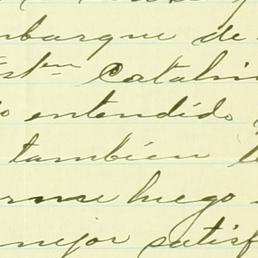 mbarque de
Estm Catalin
entendido
también le
rme luego
mejor satisf